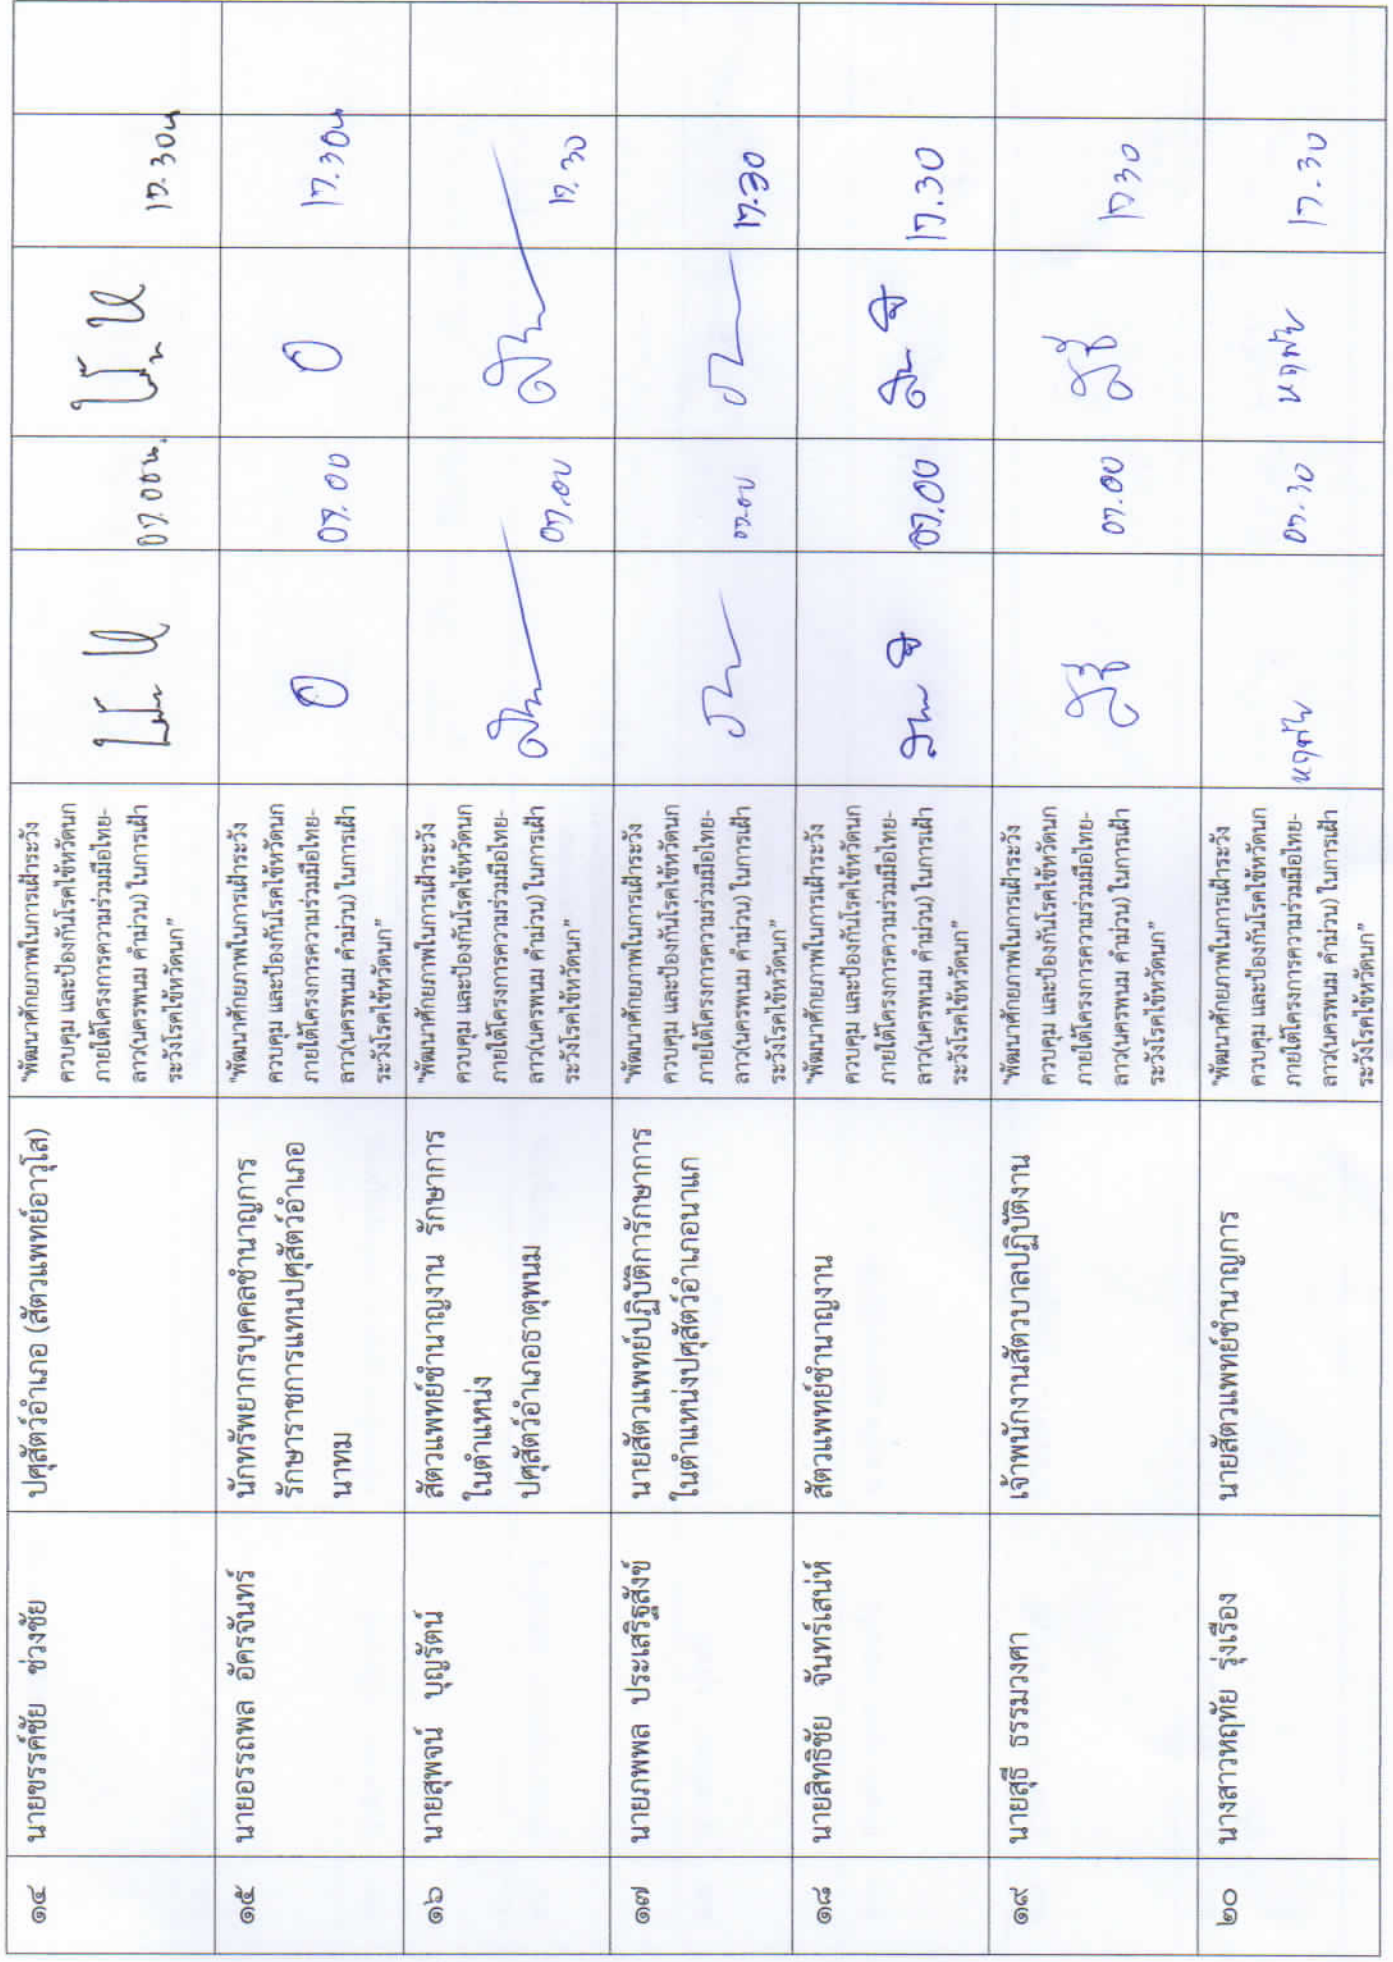 ๑๔
นายขรรค์ชัย ช่วงชัย
ปศุสัตว์อำเภอ (สัตวแพทย์อาวุโส)
"พัฒนาศักยภาพในการเฝ้าระวัง
ควบคุม และป้องกันโรคไข้หวัดนก
ภายใต้โครงการความร่วมมือไทย-
ลาว(นครพนม คำม่วน) ในการเฝ้า
ระวังโรคไข้หวัดนก"
07.00น.
17.30น
๑๕
นายอรรถพล อัครจันทร์
นักทรัพยากรบุคคลชำนาญการ
รักษาราชการแทนปศุสัตว์อำเภอ
นาทม
"พัฒนาศักยภาพในการเฝ้าระวัง
ควบคุม และป้องกันโรคไข้หวัดนก
ภายใต้โครงการความร่วมมือไทย-
ลาว(นครพนม คำม่วน) ในการเฝ้า
ระวังโรคไข้หวัดนก"
07.00
17.30น
๑๖
นายสุพจน์ บุญรัตน์
สัตวแพทย์ชำนาญงาน รักษาการ
ในตำแหน่ง
ปศุสัตว์อำเภอธาตุพนม
"พัฒนาศักยภาพในการเฝ้าระวัง
ควบคุม และป้องกันโรคไข้หวัดนก
ภายใต้โครงการความร่วมมือไทย-
ลาว(นครพนม คำม่วน) ในการเฝ้า
ระวังโรคไข้หวัดนก"
07.00
17.30
๑๗
นายภพพล ประเสริฐสังข์
นายสัตวแพทย์ปฏิบัติการรักษาการ
ในตำแหน่งปศุสัตว์อำเภอนาแก
"พัฒนาศักยภาพในการเฝ้าระวัง
ควบคุม และป้องกันโรคไข้หวัดนก
ภายใต้โครงการความร่วมมือไทย-
ลาว(นครพนม คำม่วน) ในการเฝ้า
ระวังโรคไข้หวัดนก"
07.00
17.30
๑๘
นายสิทธิชัย จันทร์เสน่ห์
สัตวแพทย์ชำนาญงาน
"พัฒนาศักยภาพในการเฝ้าระวัง
ควบคุม และป้องกันโรคไข้หวัดนก
ภายใต้โครงการความร่วมมือไทย-
ลาว(นครพนม คำม่วน) ในการเฝ้า
ระวังโรคไข้หวัดนก"
07.00
17.30
๑๙
นายสุธี ธรรมวงศา
เจ้าพนักงานสัตวบาลปฏิบัติงาน
"พัฒนาศักยภาพในการเฝ้าระวัง
ควบคุม และป้องกันโรคไข้หวัดนก
ภายใต้โครงการความร่วมมือไทย-
ลาว(นครพนม คำม่วน) ในการเฝ้า
ระวังโรคไข้หวัดนก"
สุธี
07.00
สุธี
1730
๒๐
นางสาวหฤทัย รุ่งเรือง
นายสัตวแพทย์ชำนาญการ
"พัฒนาศักยภาพในการเฝ้าระวัง
ควบคุม และป้องกันโรคไข้หวัดนก
ภายใต้โครงการความร่วมมือไทย-
ลาว(นครพนม คำม่วน) ในการเฝ้า
ระวังโรคไข้หวัดนก"
หฤทัย
07.30
หฤทัย
17.30